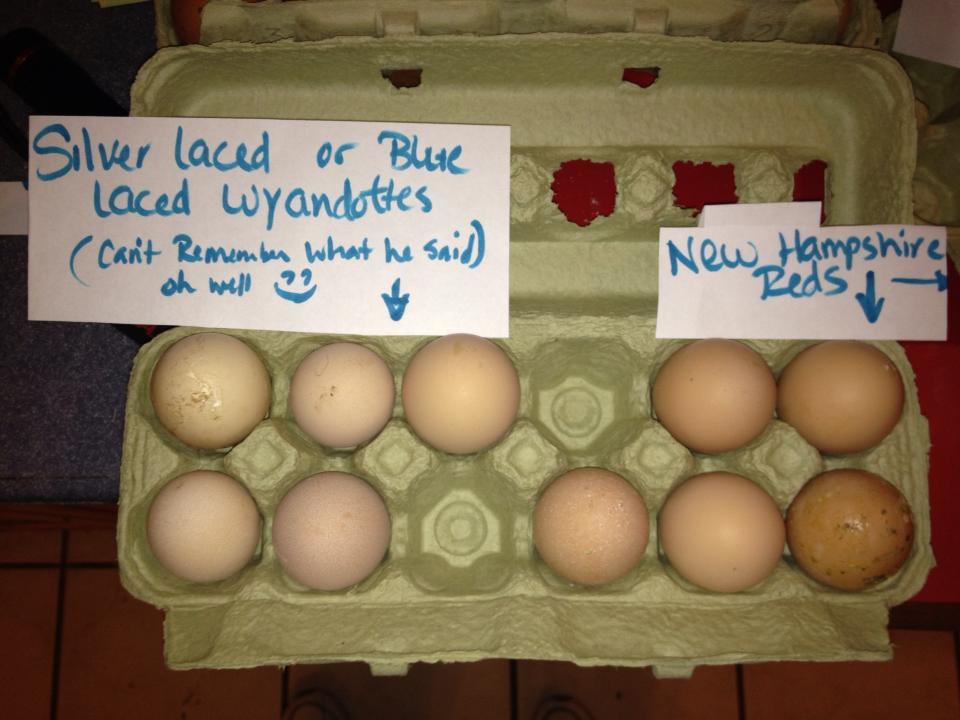 Silver laced or Blue
laced Wyandottes
(Can't Remember what he said)
oh well
New Hampshire
Reds